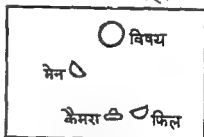 विषय
मेन
कैमरा फिल